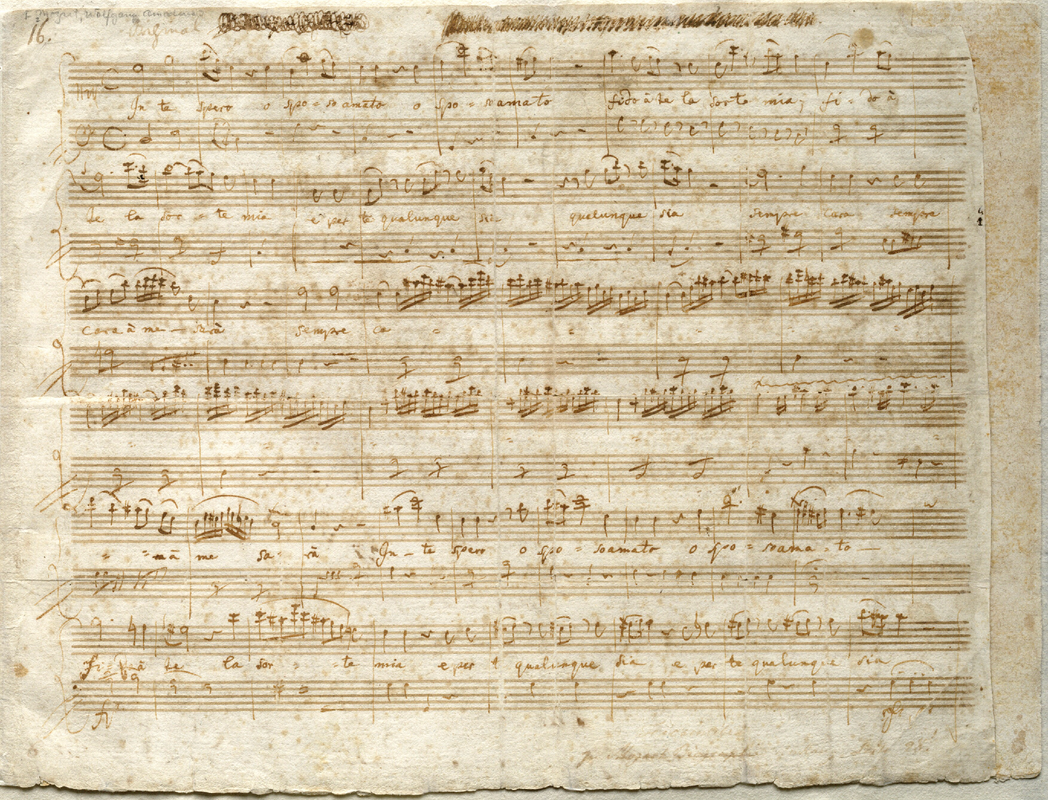 Mozart, Wolfgang Amadeus
16. Original
In te spero o spo = so amato o spo = so amato fido à te la sorte mia, fi = do à
te la sor = te mia e per te qualunque sia qualunque sia sempre cara sempre
cara à me - sarà sempre ca
à me sa = rà In - te spero o spo = so amato o spo = so ama = to
fi = do à te la sor = te mia e per te qualunque sia e per te qualunque sia